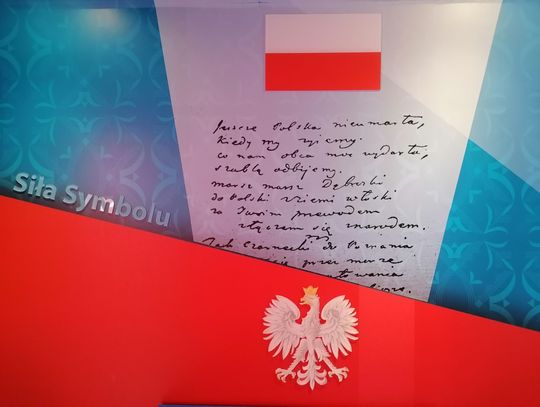 Siła Symbolu
Jescze Polska nieumarła,
kiedy my żyiemy.
co nam obca moc wydarła,
szablą odbijemy.
marsz marsz Dąbrski
do Polski ziemi włoski
za Twoim przewodem
złączem się znarodem.
Jak Czarnecki do Poznania
się przez morze